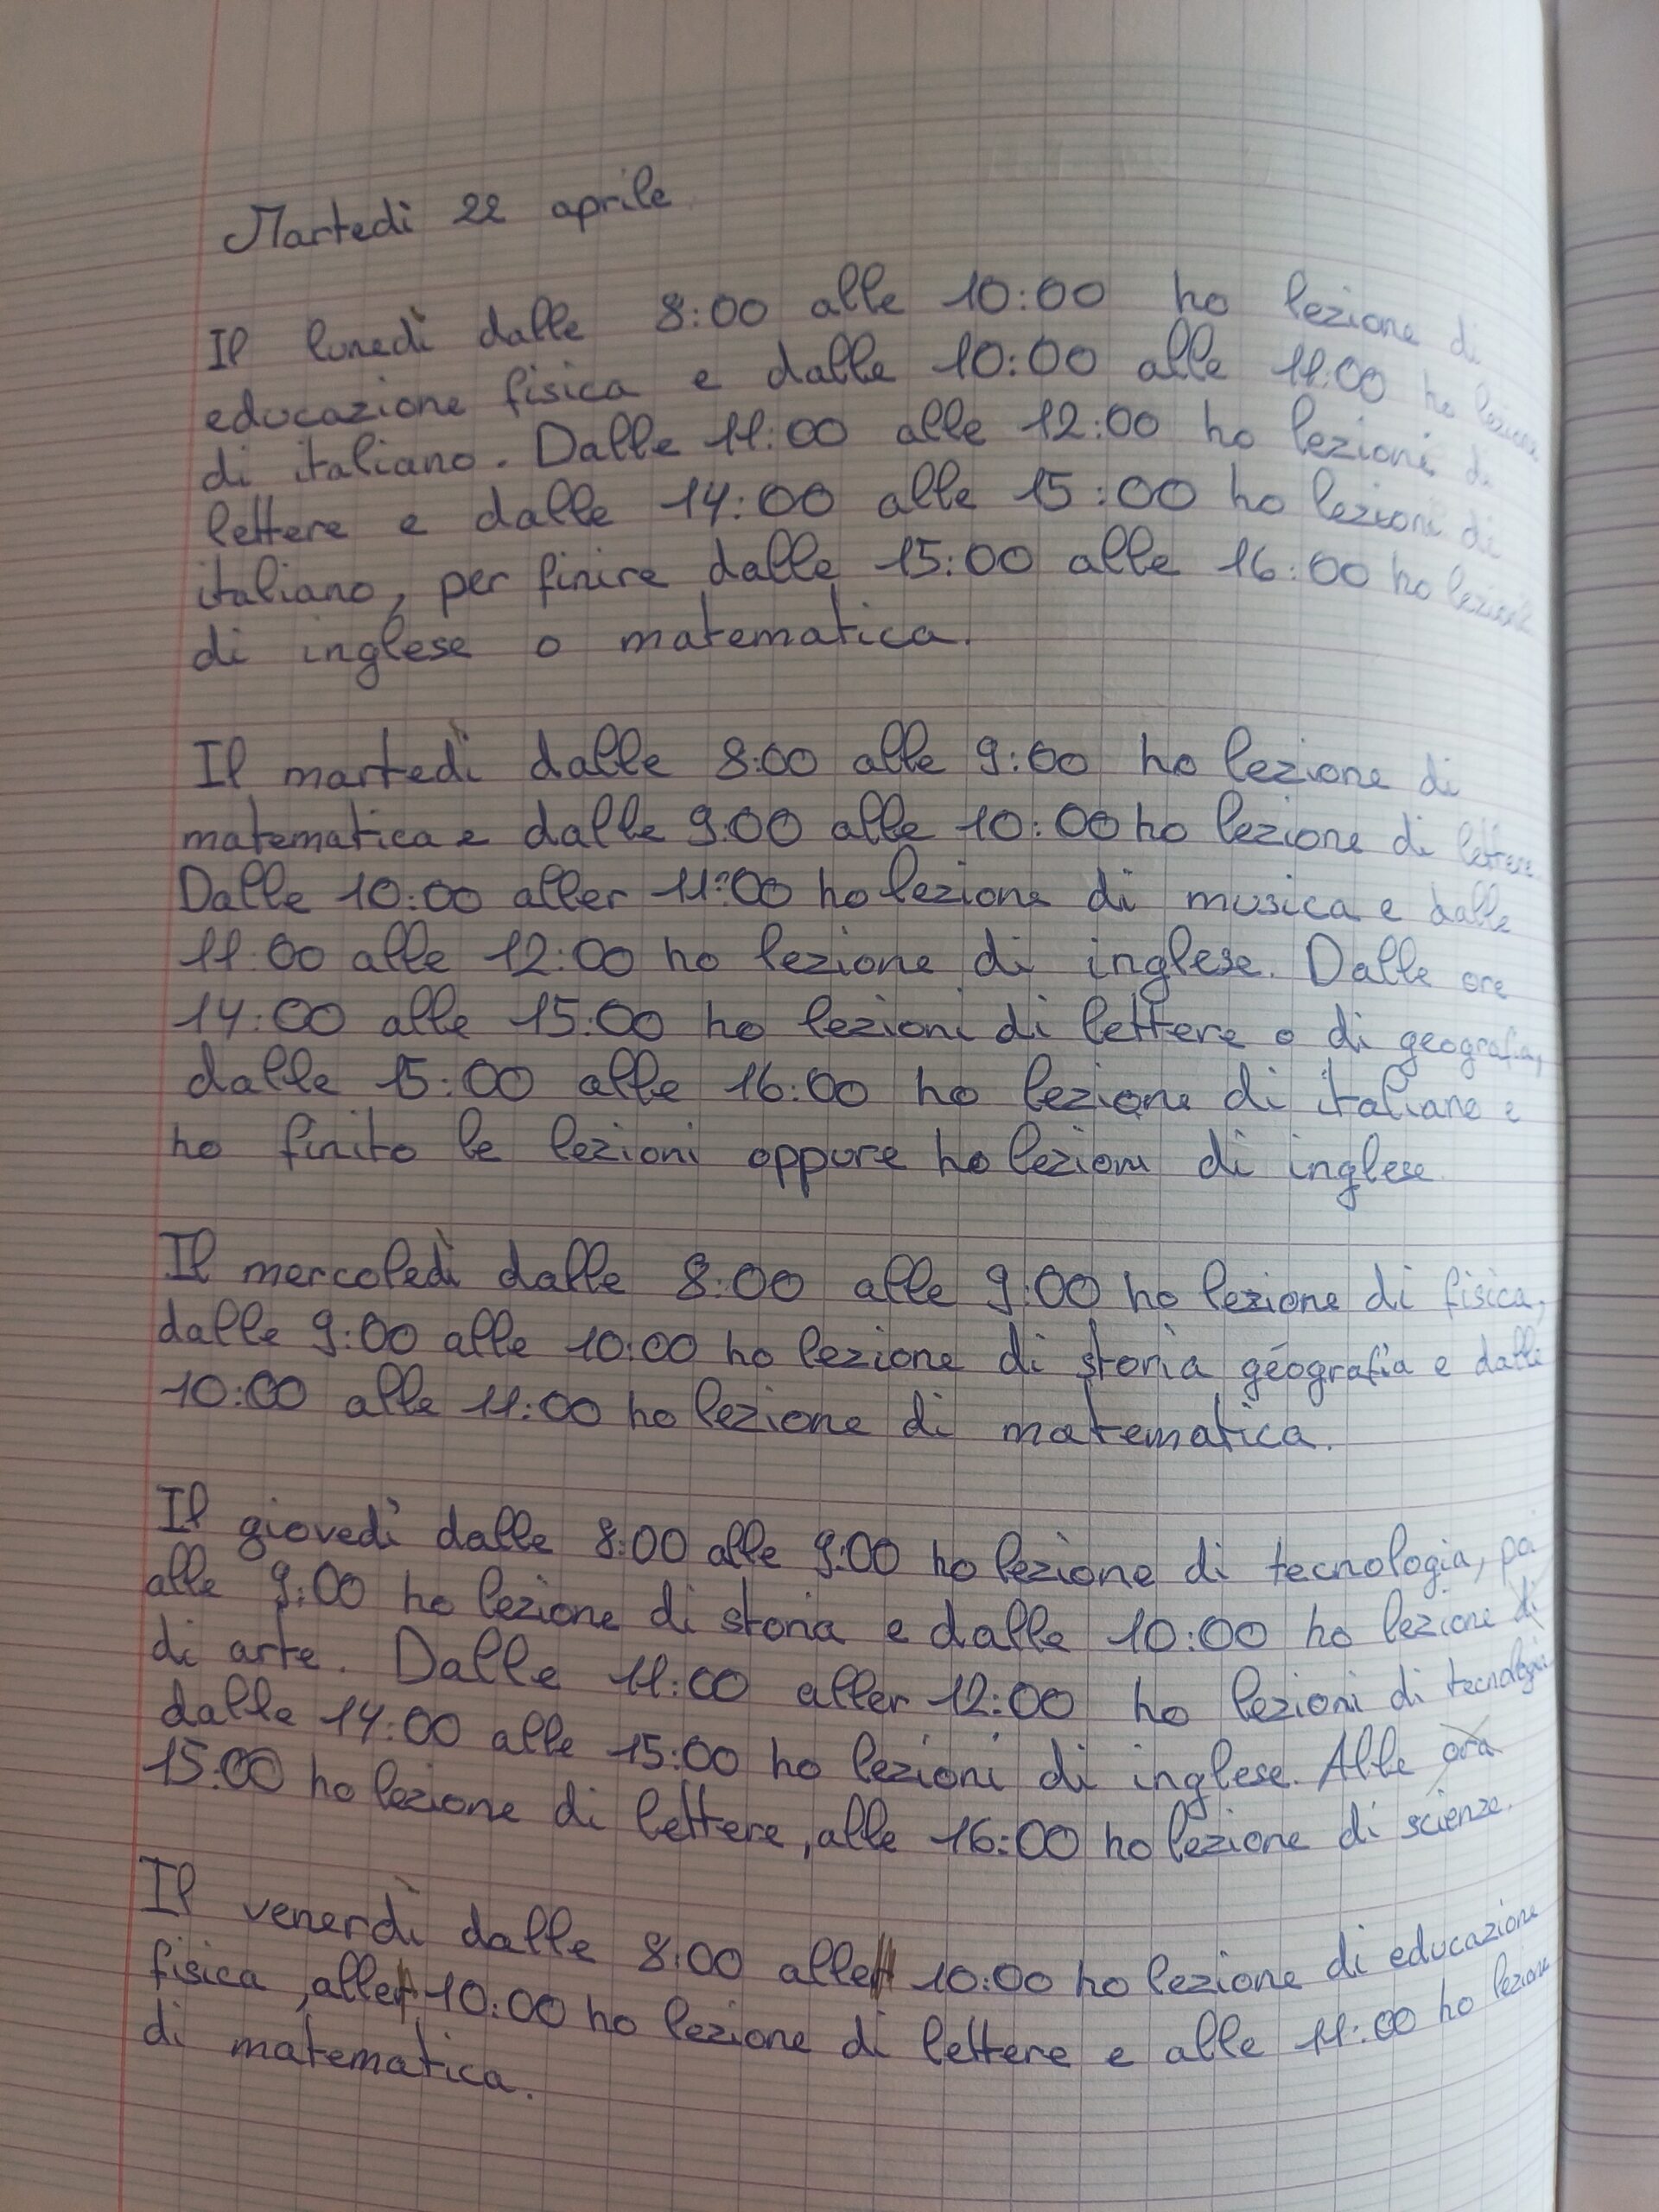 Martedì 22 aprile
Il lunedì dalle 8:00 alle 10:00 ho lezione di
educazione fisica e dalle 10:00 alle 11:00 ho lezione
di italiano. Dalle 11:00 alle 12:00 ho lezioni di
lettere e dalle 14:00 alle 15:00 ho lezioni di
italiano, per finire dalle 15:00 alle 16:00 ho lezione
di inglese o matematica.
Il martedì dalle 8:00 alle 9:00 ho lezione di
matematica e dalle 9:00 alle 10:00 ho lezione di lettere.
Dalle 10:00 aller 11:00 ho lezione di musica e dalle
11:00 alle 12:00 ho lezione di inglese. Dalle ore
14:00 alle 15:00 ho lezioni di lettere o di geografia,
dalle 15:00 alle 16:00 ho lezione di italiano e
ho finito le lezioni oppure ho lezioni di inglese.
Il mercoledì dalle 8:00 alle 9:00 ho lezione di fisica,
dalle 9:00 alle 10:00 ho lezione di storia géografia e dalle
10:00 alle 11:00 ho lezione di matematica.
Il giovedì dalle 8:00 alle 9:00 ho lezione di tecnologia, poi
alle 9:00 ho lezione di storia e dalle 10:00 ho lezione di
di arte. Dalle 11:00 aller 12:00 ho lezioni di tecnologia
dalle 14:00 alle 15:00 ho lezioni di inglese. Alle ora
15:00 ho lezione di lettere, alle 16:00 ho lezione di scienze.
Il venerdì dalle 8:00 alle 10:00 ho lezione di educazione
fisica, alle 10:00 ho lezione di lettere e alle 11:00 ho lezione
di matematica.